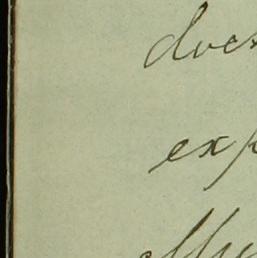 does
exp